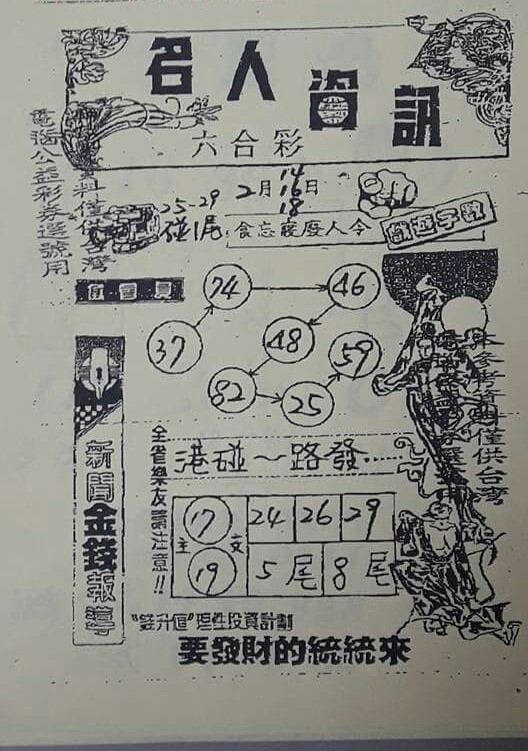 名人資訊
六合彩
電腦公益彩券選號用
資料僅供台灣
25-29
碰1尾
2月14日
16
18
令人廢寢忘食
會員
74
46
37
48
59
82
25
港碰一路發
全省樂友請注意!!
17
24
26
29
主
支
19
5尾
8尾
新聞金錢報導
本參考資料僅供台灣
"錢升值"理性投資計劃
要發財的統統來